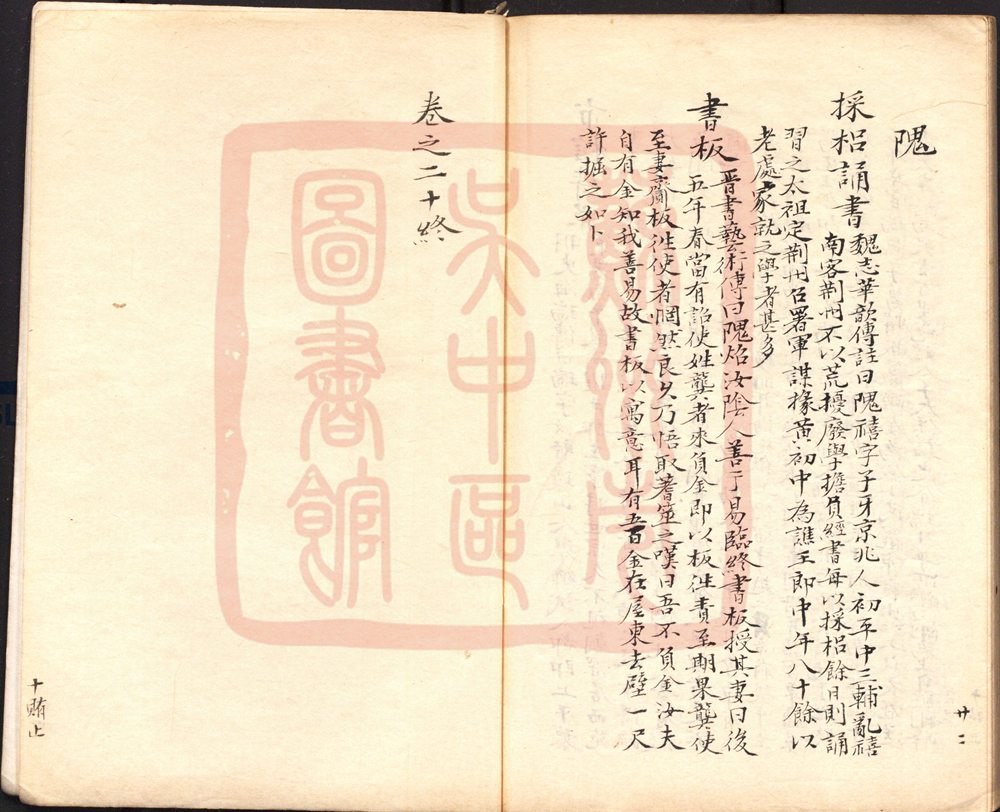 隗
採梠誦書
魏志華歆傳註曰隗禧字子牙京兆人初平中三輔亂禧
南客荆州不以荒擾廢學擔負經書每以採梠餘日則誦
習之太祖定荆州召署軍謀掾黃初中為譙王郎中年八十餘以
老處家就之學者甚多
書板
晋書藝術傳曰隗炤汝陰人善于易臨終書板授其妻曰後
五年春當有詔使姓龔者來負金即以板往責至期果龔使
至妻齎板往使者惘然良久乃悟取蓍筮之嘆曰吾不負金汝夫
自有金知我善易故書板以寓意耳有五百金在屋東去壁一尺
許掘之如卜
廿二
卷之二十終
十賄止
吳中區
圖書館